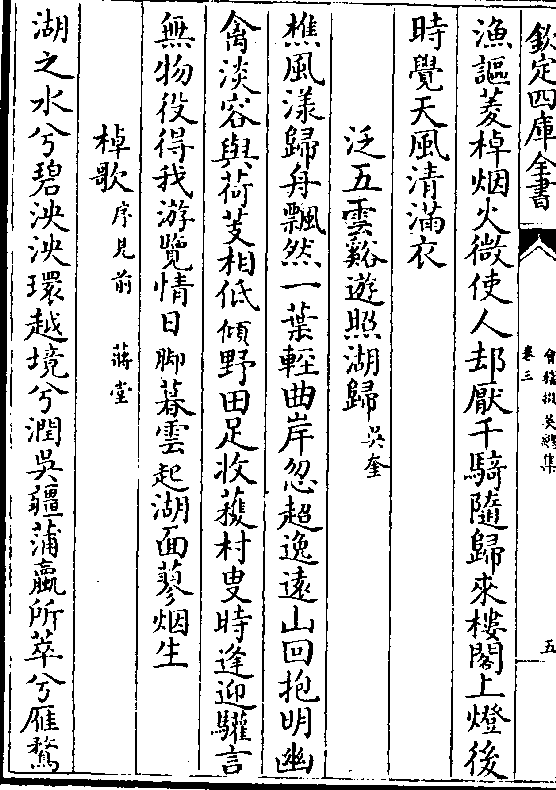 欽定四庫全書
會稽掇英總集
卷三
五
漁謳菱棹烟火微使人却厭千騎隨歸來樓閣上燈後
時覺天風清滿衣
泛五雲谿遊照湖歸 吳奎
樵風漾歸舟飄然一葉輕曲岸忽超逸遠山回抱明幽
禽淡容與荷芰相低傾野田足收穫村叟時逢迎驩言
無物役得我游覽情日脚暮雲起湖面蓼烟生
棹歌 序見前 蔣堂
湖之水兮碧泱泱環越境兮潤吳疆蒲蠃所萃兮雁鶩